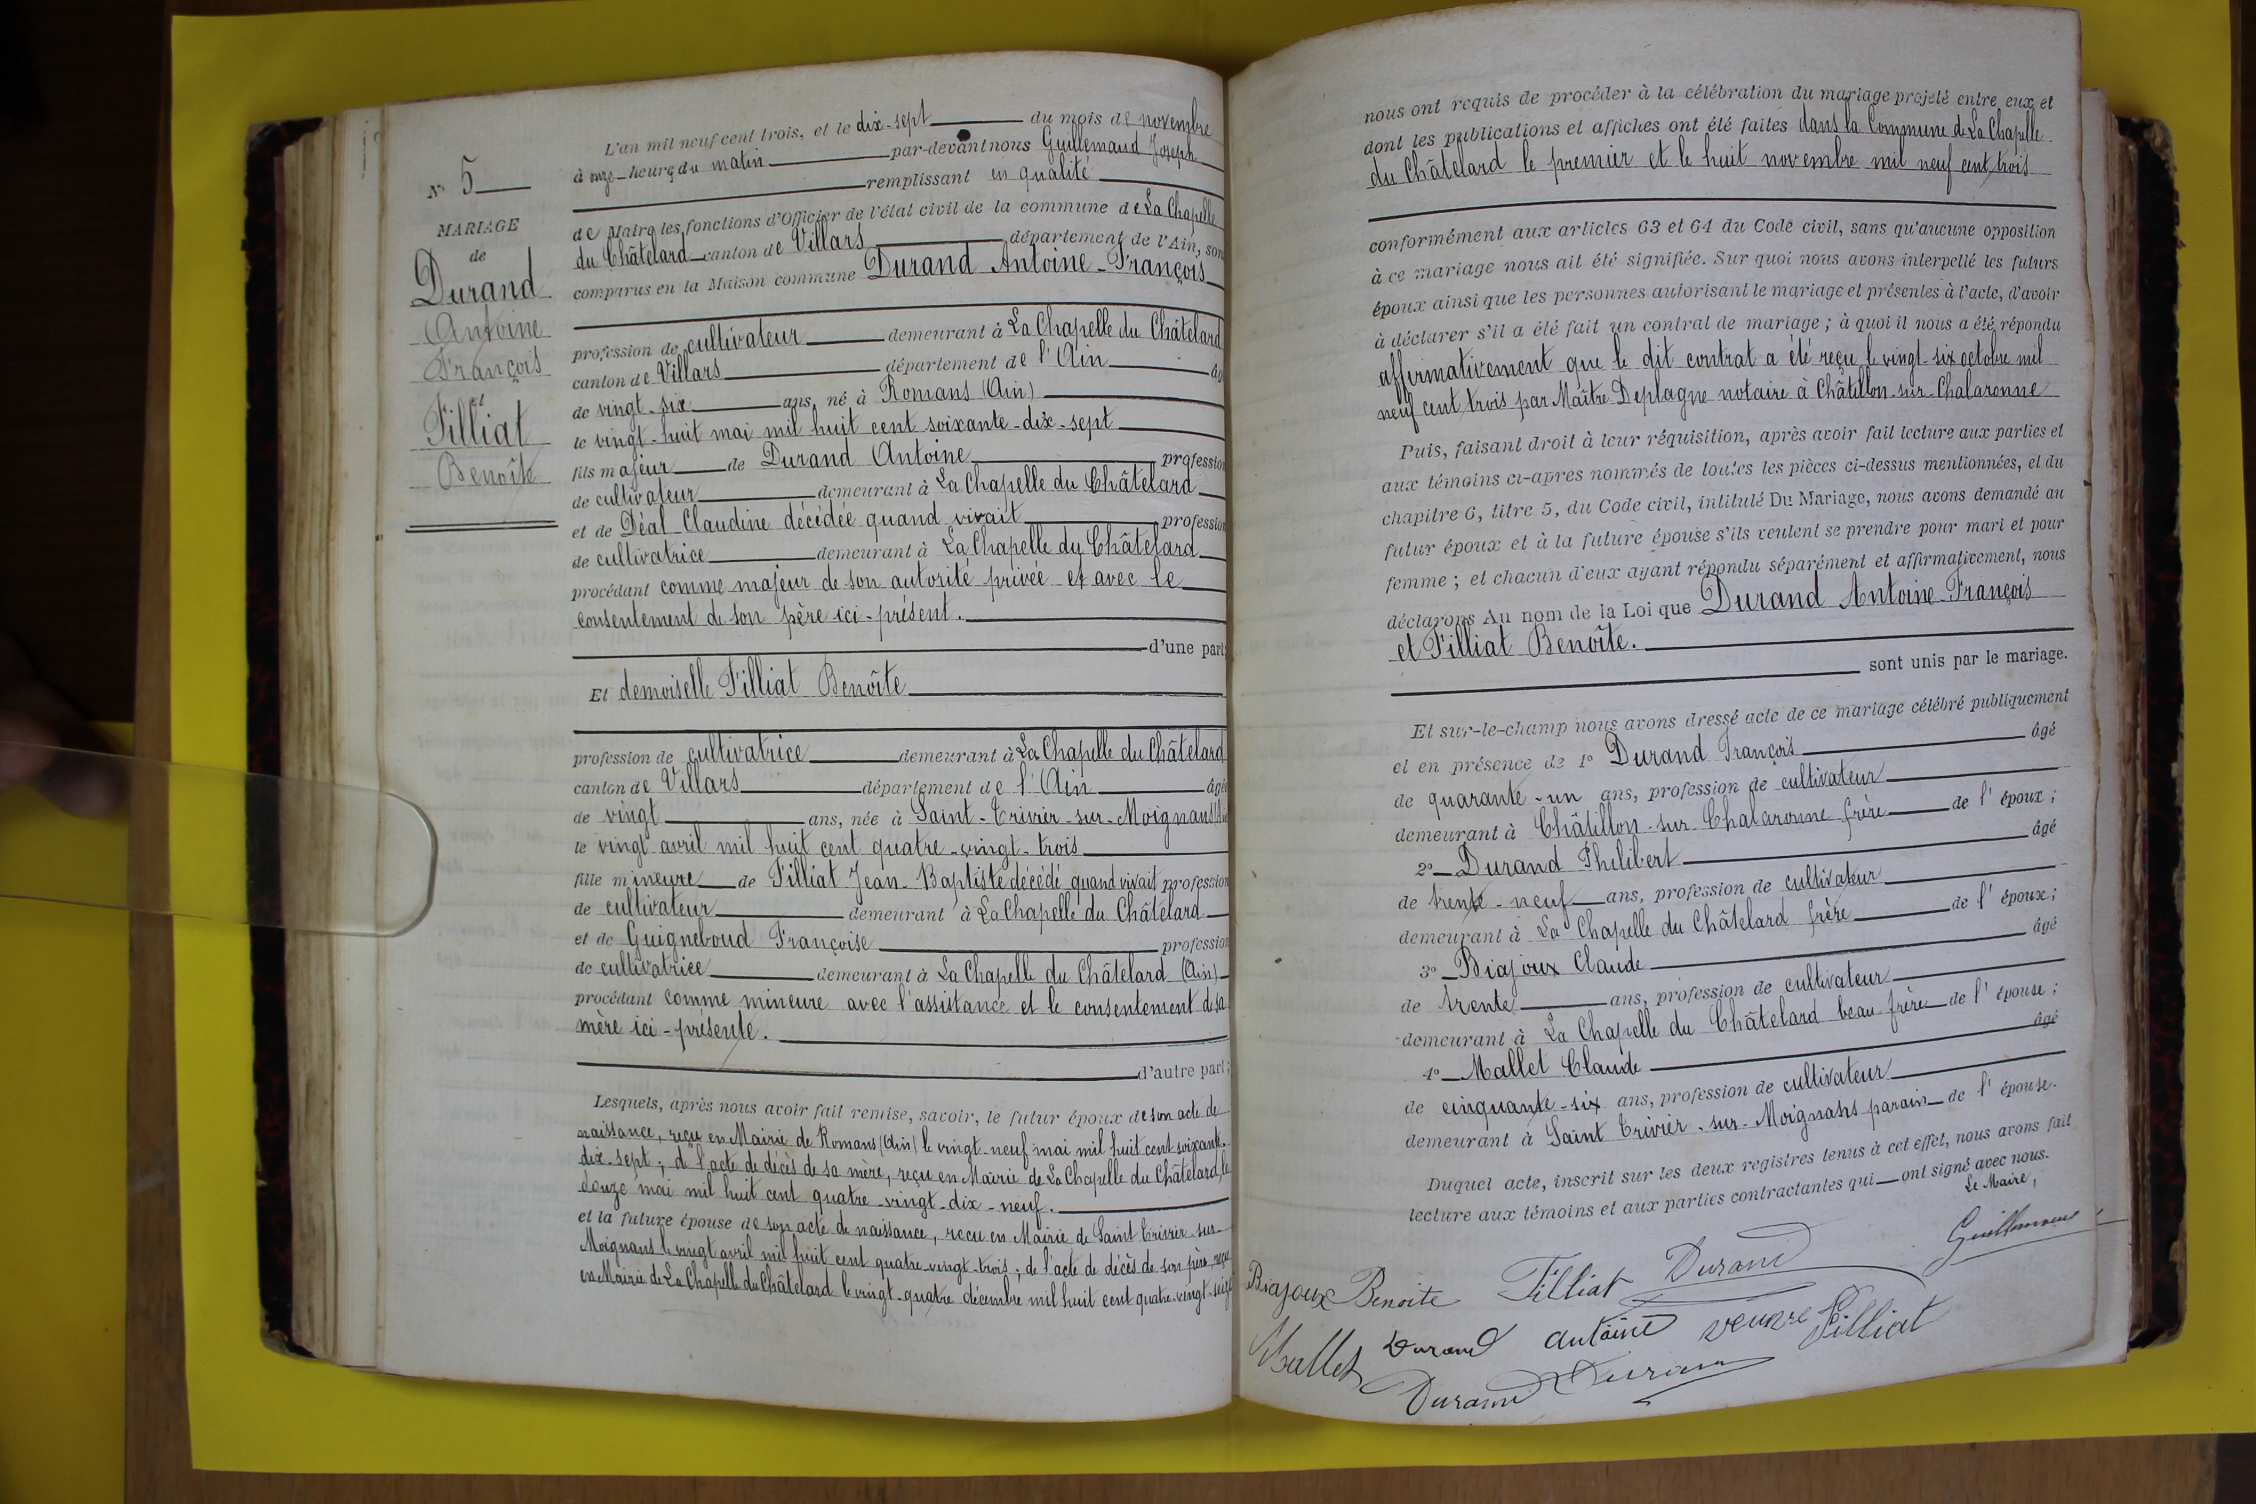 N° 5
MARIAGE
de
Durand
Antoine
François
et
Filliat
Benoîte
L'an mil neuf cent trois, et le dix-sept du mois de novembre
à onze heures du matin par-devant nous Guillemaud Joseph
remplissant en qualité
de Maire les fonctions d'Officier de l'état civil de la commune de La Chapelle
du Châtelard canton de Villars département de l'Ain, sont
comparus en la Maison commune Durand Antoine-François
profession de cultivateur demeurant à La Chapelle du Châtelard
canton de Villars département de l'Ain âgé
de vingt-six ans, né à Romans (Ain)
le vingt-huit mai mil huit cent soixante-dix-sept
fils majeur de Durand Antoine profession
de cultivateur demeurant à La Chapelle du Châtelard
et de Déal Claudine décédée quand vivait profession
de cultivatrice demeurant à La Chapelle du Châtelard
procédant comme majeur de son autorité privée et avec le
consentement de son père ici-présent.
d'une part;
Et demoiselle Filliat Benoîte
profession de cultivatrice demeurant à La Chapelle du Châtelard
canton de Villars département de l'Ain âgée
de vingt ans, née à Saint-Trivier-sur-Moignans (Ain)
le vingt avril mil huit cent quatre-vingt-trois
fille mineure de Filliat Jean-Baptiste décédé quand vivait profession
de cultivateur demeurant à La Chapelle du Châtelard
et de Guigneboud Françoise profession
de cultivatrice demeurant à La Chapelle du Châtelard (Ain)
procédant comme mineure avec l'assistance et le consentement de sa
mère ici-présente.
d'autre part;
Lesquels, après nous avoir fait remise, savoir, le futur époux de son acte de
naissance, reçu en Mairie de Romans (Ain) le vingt-neuf mai mil huit cent soixante-
dix-sept; de l'acte de décès de sa mère, reçu en Mairie de La Chapelle du Châtelard, le
douze mai mil huit cent quatre-vingt-dix-neuf.
et la future épouse de son acte de naissance, reçu en Mairie de Saint Trivier-sur-
Moignans le vingt avril mil huit cent quatre-vingt-trois; de l'acte de décès de son père, reçu
en Mairie de La Chapelle du Châtelard le vingt-quatre décembre mil huit cent quatre-vingt-seize
nous ont requis de procéder à la célébration du mariage projeté entre eux et
dont les publications et affiches ont été faites dans la Commune de La Chapelle
du Châtelard le premier et le huit novembre mil neuf cent trois
conformément aux articles 63 et 64 du Code civil, sans qu'aucune opposition
à ce mariage nous ait été signifiée. Sur quoi nous avons interpellé les futurs
époux ainsi que les personnes autorisant le mariage et présentes à l'acte, d'avoir
à déclarer s'il a été fait un contrat de mariage; à quoi il nous a été répondu
affirmativement que le dit contrat a été reçu le vingt-six octobre mil
neuf cent trois par Maître Deplagne notaire à Châtillon-sur-Chalaronne
Puis, faisant droit à leur réquisition, après avoir fait lecture aux parties et
aux témoins ci-après nommés de toutes les pièces ci-dessus mentionnées, et du
chapitre 6, titre 5, du Code civil, intitulé Du Mariage, nous avons demandé au
futur époux et à la future épouse s'ils veulent se prendre pour mari et pour
femme; et chacun d'eux ayant répondu séparément et affirmativement, nous
déclarons Au nom de la Loi que Durand Antoine-François
et Filliat Benoîte.
sont unis par le mariage.
Et sur-le-champ nous avons dressé acte de ce mariage célébré publiquement
et en présence de 1° Durand François âgé
de quarante-un ans, profession de cultivateur
demeurant à Châtillon-sur-Chalaronne frère de l'époux;
2° Durand Philibert âgé
de trente-neuf ans, profession de cultivateur
demeurant à La Chapelle du Châtelard frère de l'époux;
3° Biajoux Claude âgé
de trente ans, profession de cultivateur
demeurant à La Chapelle du Châtelard beau frère de l'épouse;
4° Mallet Claude âgé
de cinquante-six ans, profession de cultivateur
demeurant à Saint Trivier-sur-Moignans parain de l'épouse.
Duquel acte, inscrit sur les deux registres tenus à cet effet, nous avons fait
lecture aux témoins et aux parties contractantes qui ont signé avec nous.
Le Maire,
Guillemaud
Biajoux Benoite Filliat Durand
Mallet Durand antoine veuve Filliat
Durand Durand